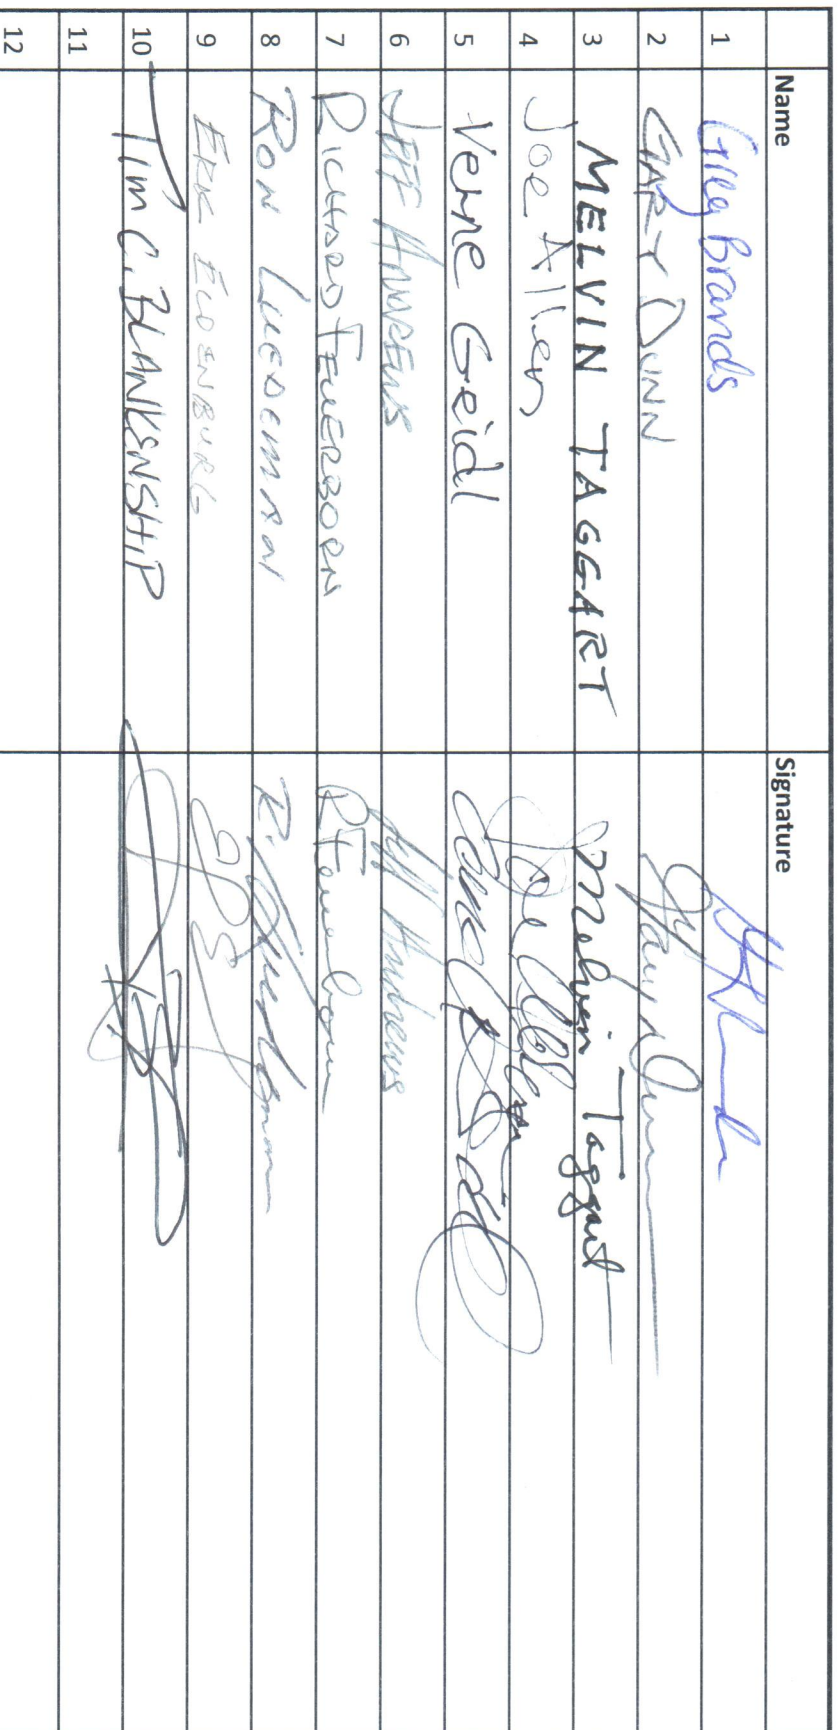 Name Signature
1 Greg Brands
2 GARY DUNN Gary Dunn
3 MELVIN TAGGART Melvin Taggart
4 Joe Allen Joe Allen
5 Verne Geidl
6 JEFF ANDREWS Jeff Andrews
7 RICHARD FEUERBORN R Feuerborn
8 RON LUEDEMAN R. Luedeman
9 ERIK
10 Tim C. BLANKENSHIP
11
12